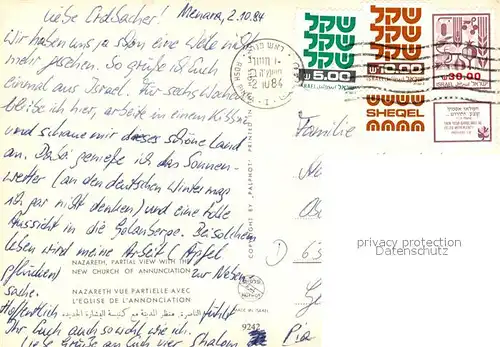 Liebe Erdsacher! Menara, 2.10.84
Wir haben uns ja schon eine Weile nicht
mehr gesehen. So grüße ich Euch
einmal aus Israel. Für sechs Wochen
bleibe ich hier, arbeite in einem Kibbuz
und schaue mir dieses schöne Land
an. Dabei genieße ich das Sonnen-
wetter (an den deutschen Winter mag
ich gar nicht denken) und eine tolle
Aussicht in die Golanberge. Bei solchem
leben wird meine Arbeit (Äpfel
pflücken) zur Neben
sache.
Hoffentlich fühlt
Ihr Euch auch so wohl wie ich.
Liebe Grüße an Euch vier Shalom
Pia
NAZARETH, PARTIAL VIEW WITH THE
NEW CHURCH OF ANNUNCIATION
NAZARETH VUE PARTIELLE AVEC
L'EGLISE DE L'ANNONCIATION
الناصرة، منظر المدينة مع كنيسة البشارة الجديدة
COPYRIGHT BY "PALPHOT"
PALPHOT
MADE IN ISRAEL
9242
ראש פינה
2 10 84
שקל
5.00
ISRAEL
שקל
10.00
ISRAEL
SHEQEL
30.00
ISRAEL
Familie
D 63
privacy protection
Datenschutz